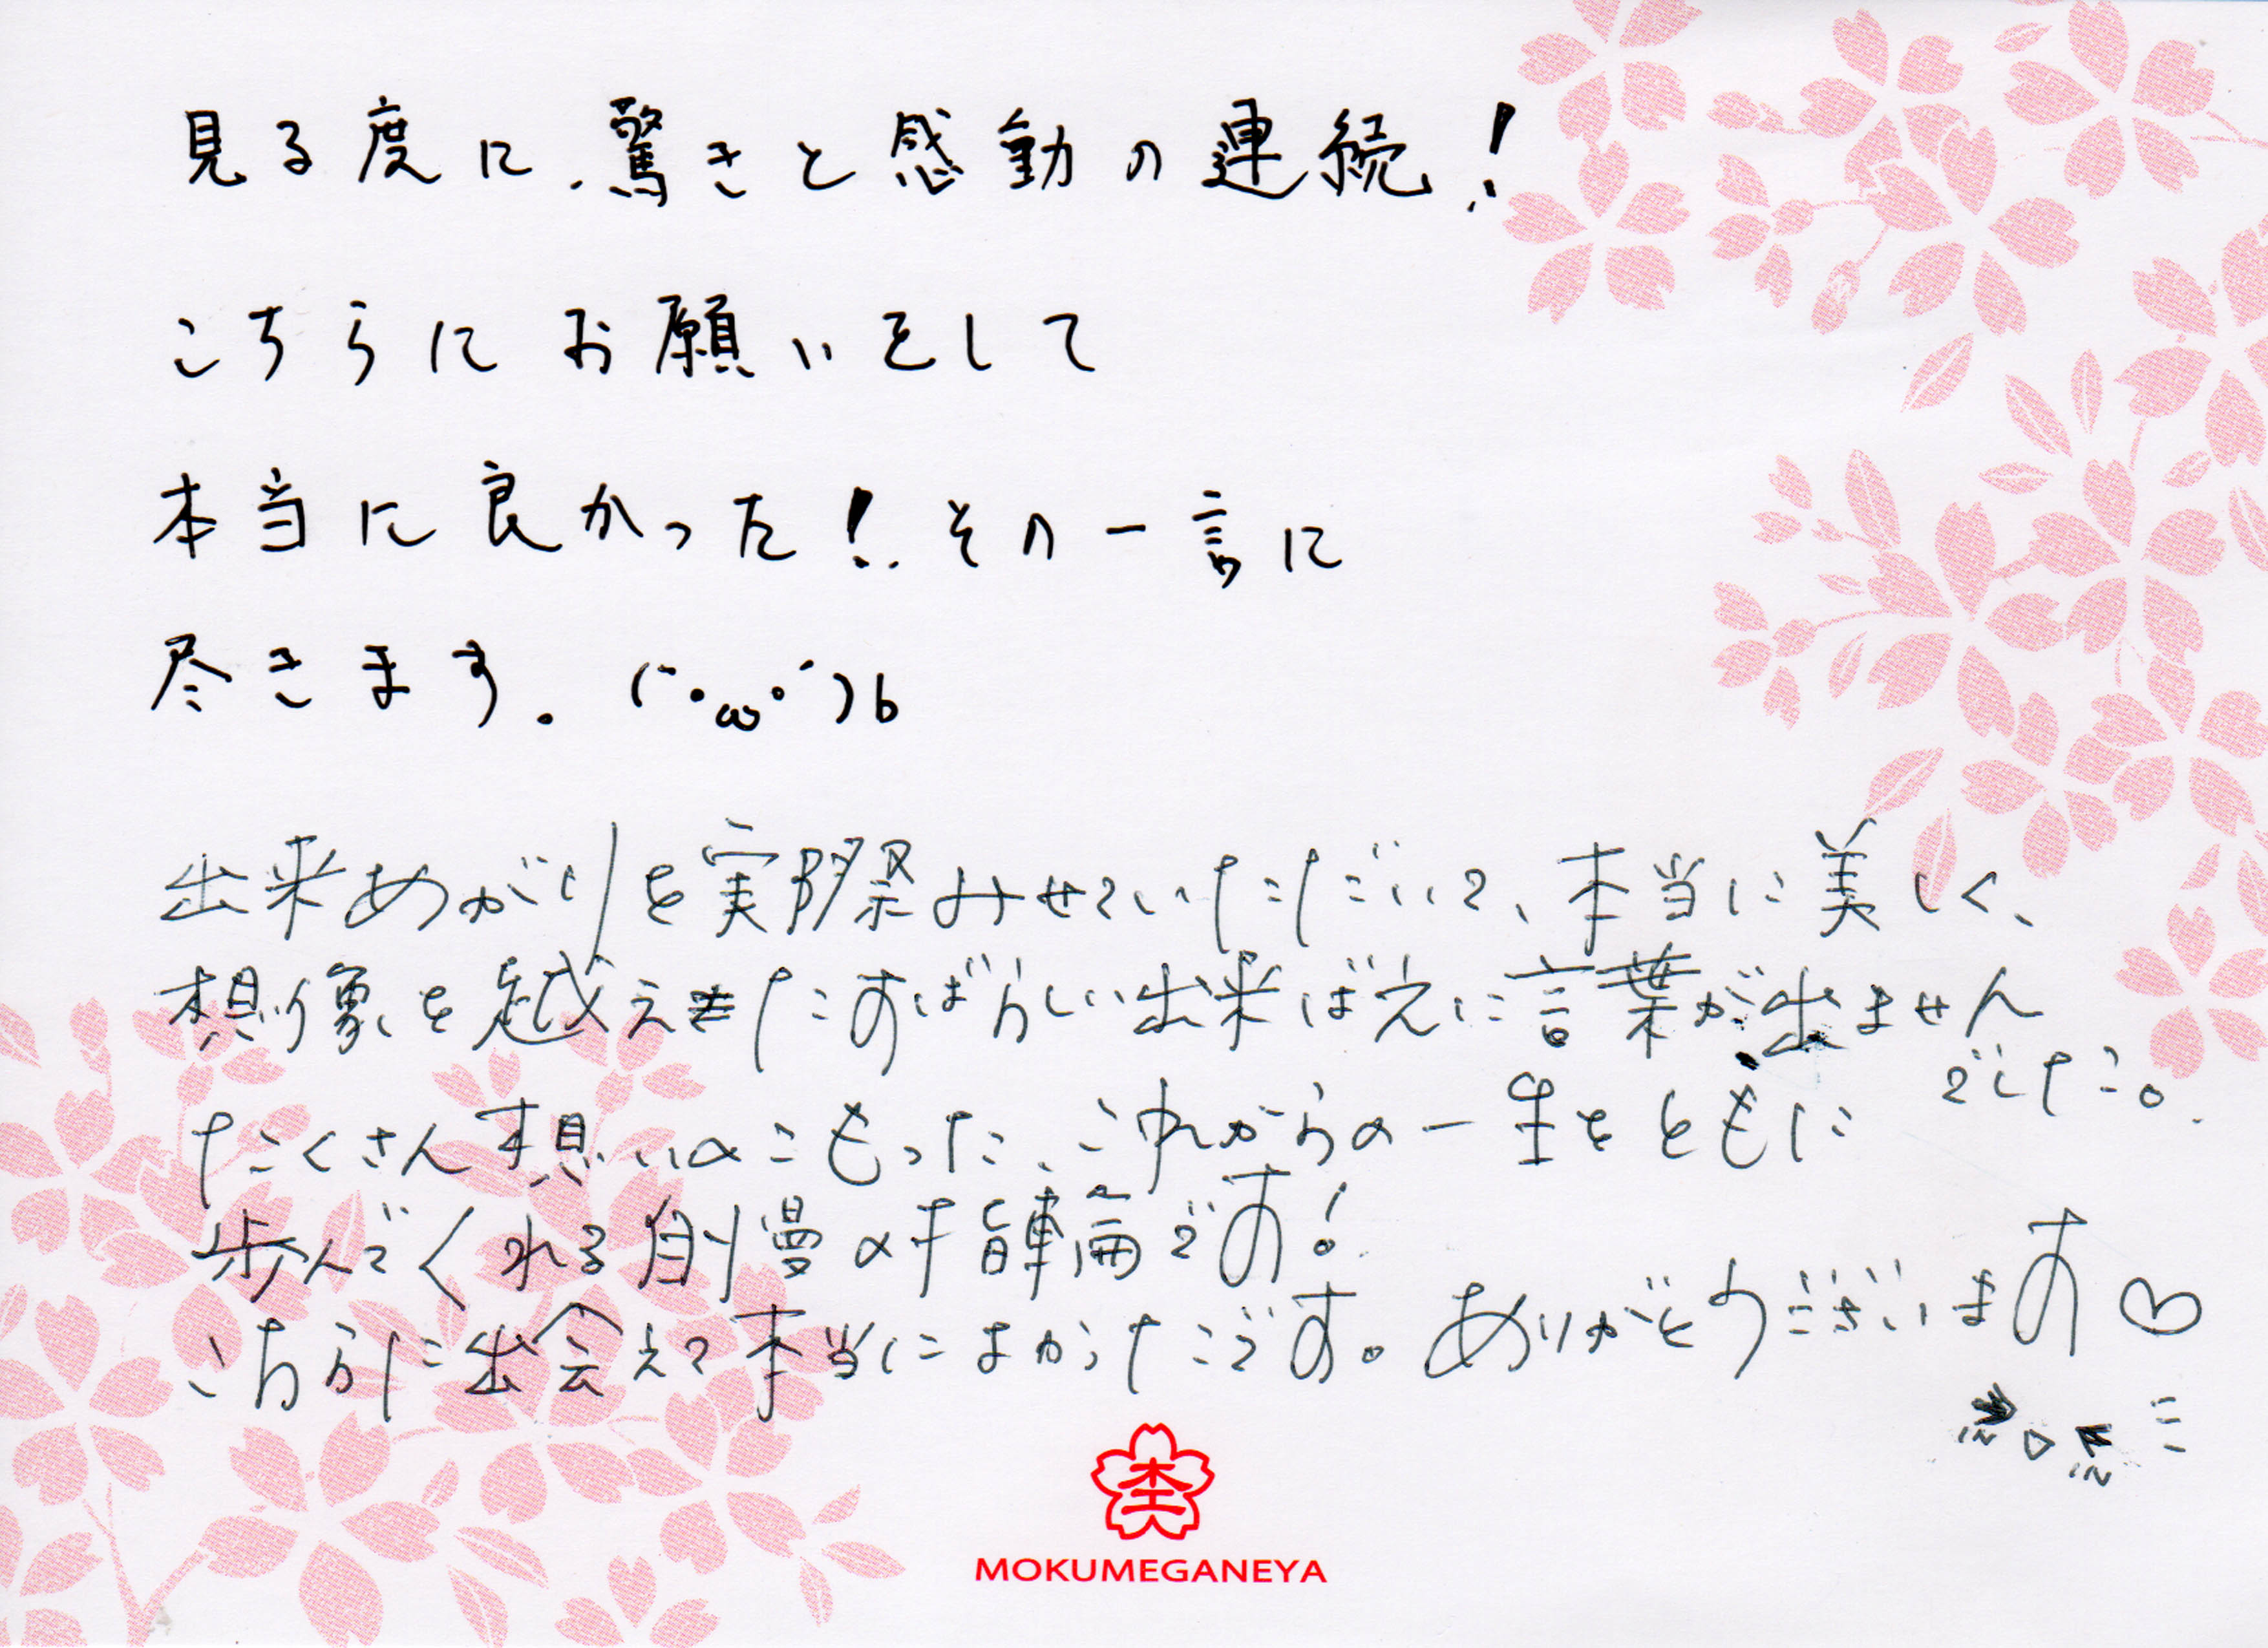 見る度に、驚きと感動の連続!
こちらにお願いをして
本当に良かった!その一言に
尽きます。(`・ω・´)b
出来あがりを実際みせていただいて、本当に美しく、
想像を越えたすばらしい出来ばえに言葉が出ません
でした。
たくさん想いのこもった、これからの一生をともに
歩んでくれる自慢の指輪です!
こちらに出会えて本当によかったです。ありがとうございます♡
MOKUMEGANEYA